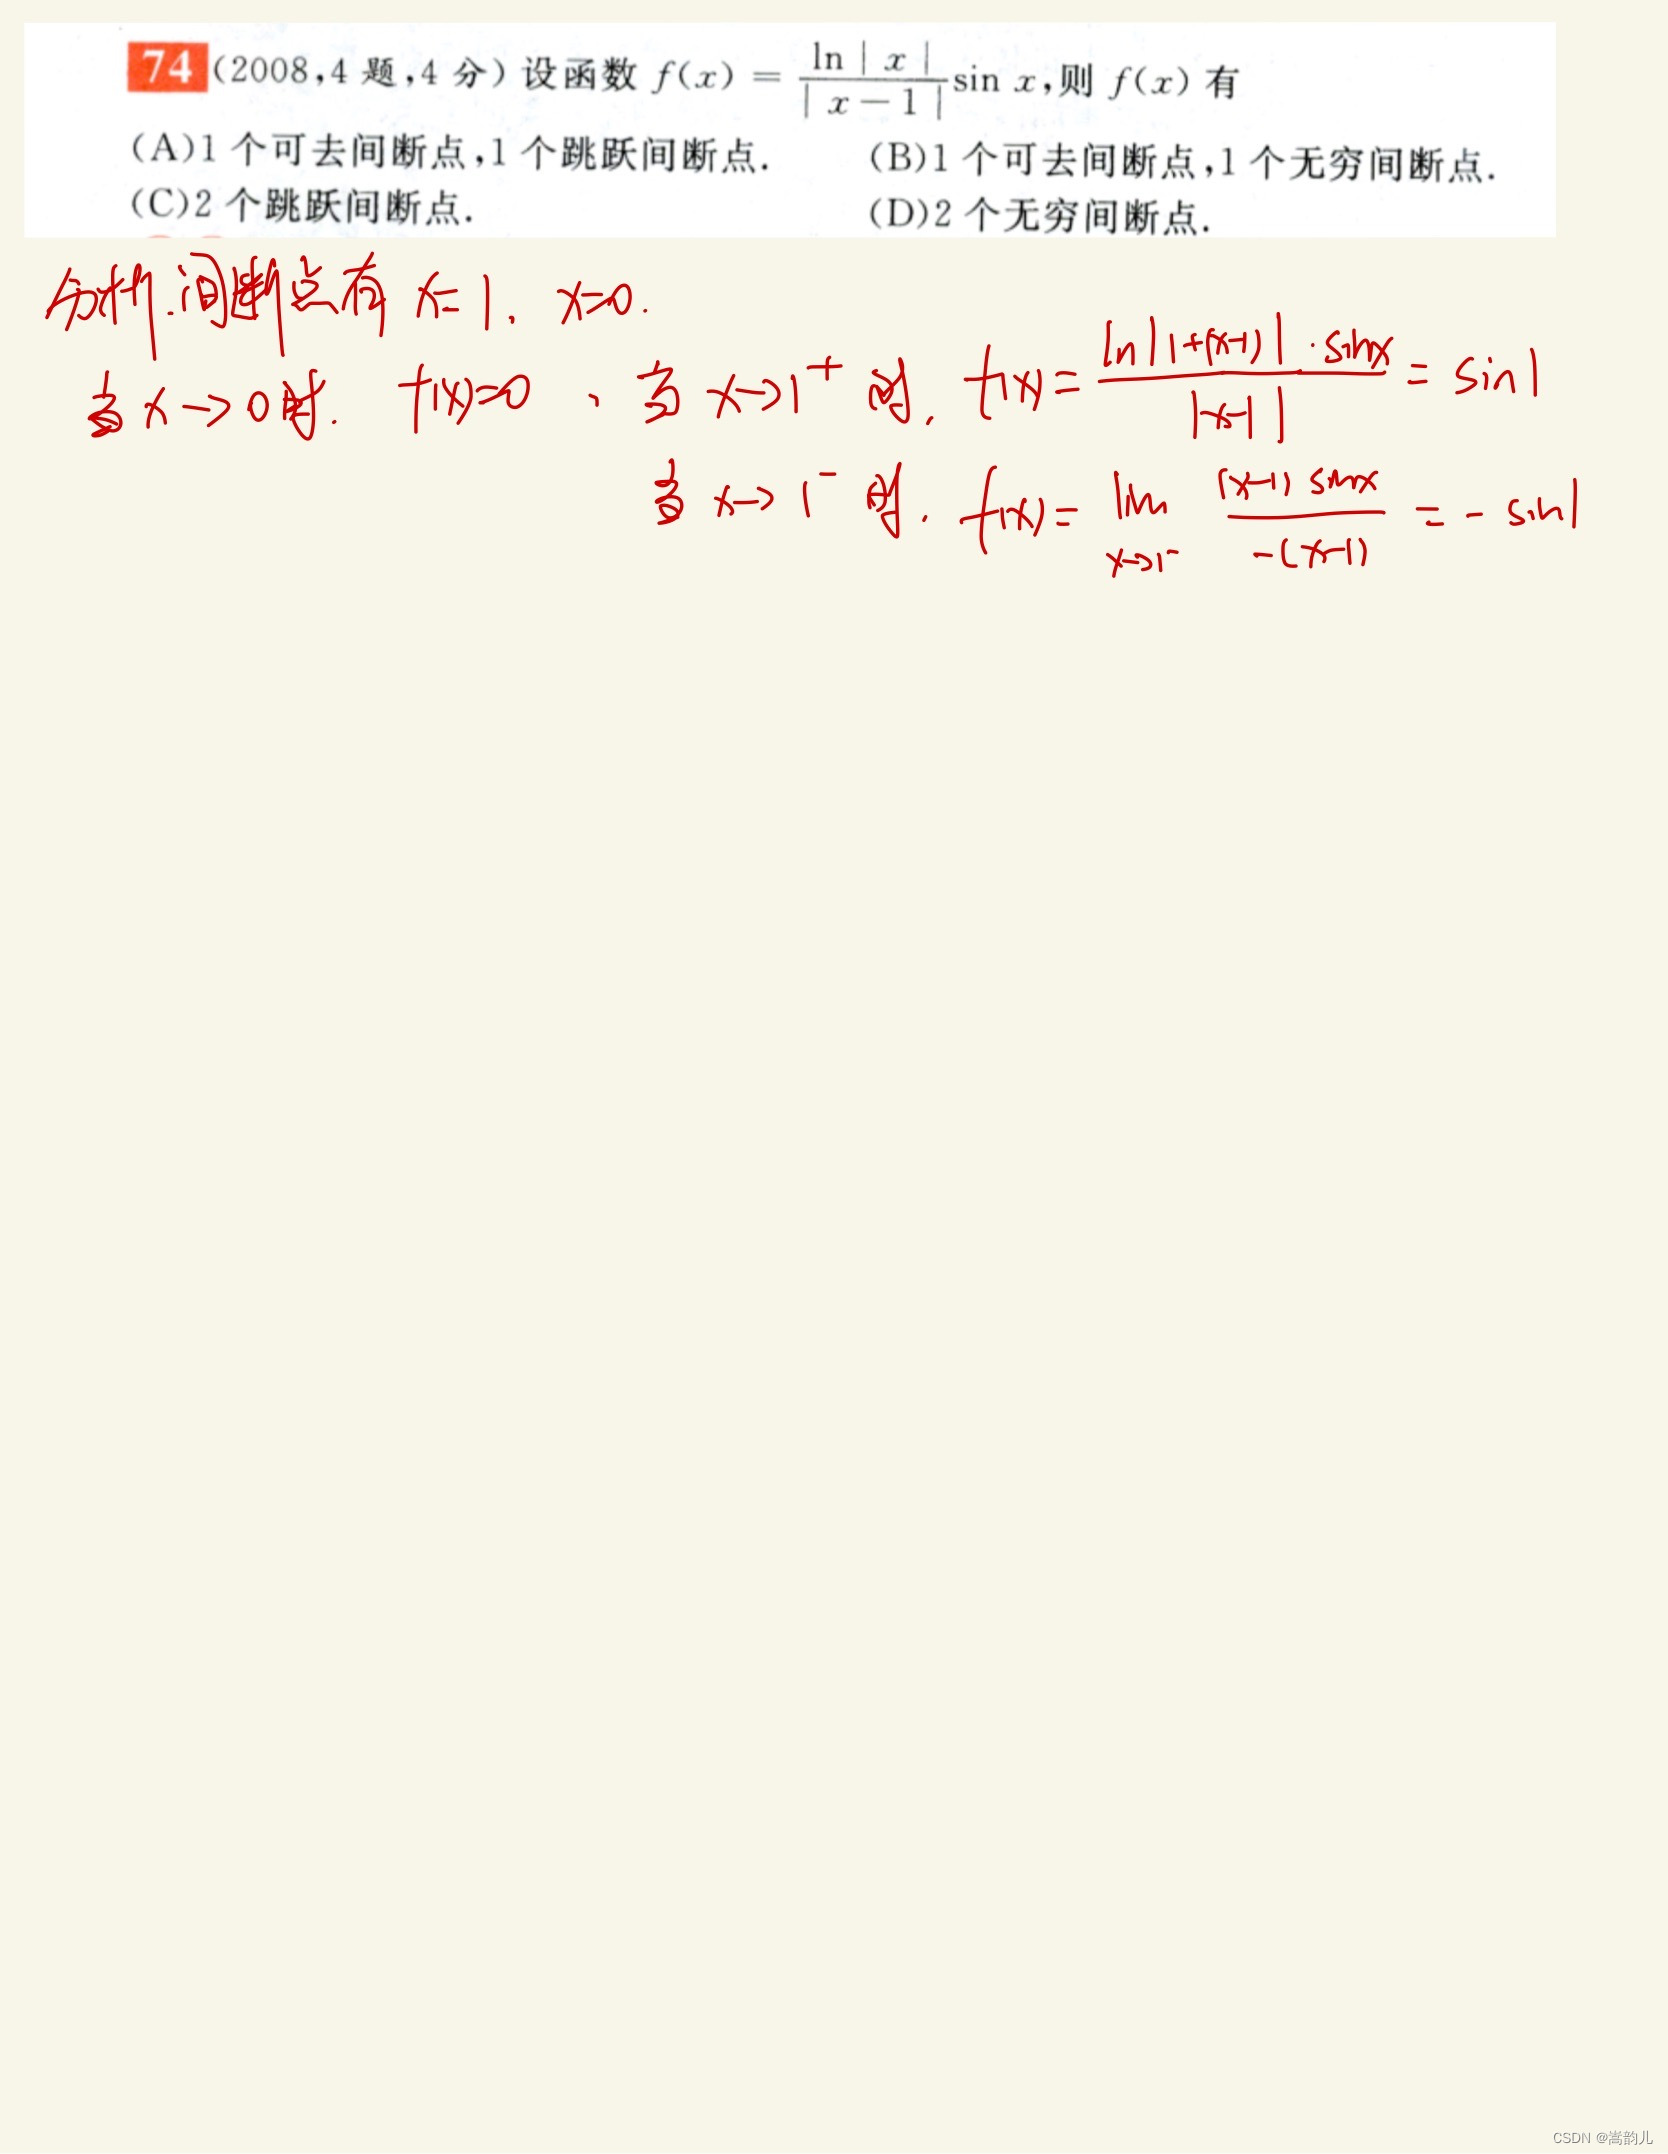 74 (2008,4 题,4 分) 设函数 f(x) = \frac{ln | x |}{| x − 1 |} sin x,则 f(x) 有
(A)1 个可去间断点,1 个跳跃间断点.
(B)1 个可去间断点,1 个无穷间断点.
(C)2 个跳跃间断点.
(D)2 个无穷间断点.
分析.间断点有 x=1, x=0.
当 x→0时. f(x)=0 、当 x→1⁺ 时, f(x)= \frac{ln|1+(x-1)|·sinx}{|x-1|} = sin1
当 x→1⁻ 时, f(x)= lim_{x→1⁻} \frac{(x-1) sinx}{-(x-1)} = - sin1
CSDN @嵩韵儿